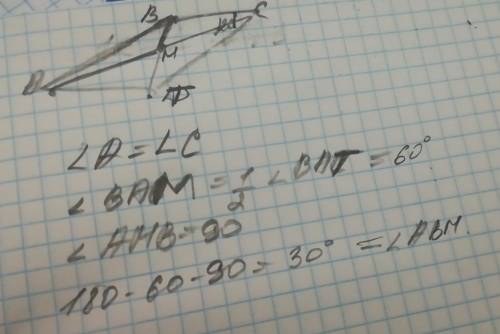 B C
M
A
∠A = ∠C
∠BAM = 1/2 ∠BAT = 60°
∠AMB = 90
180 - 60 - 90 = 30° = ∠ABM.